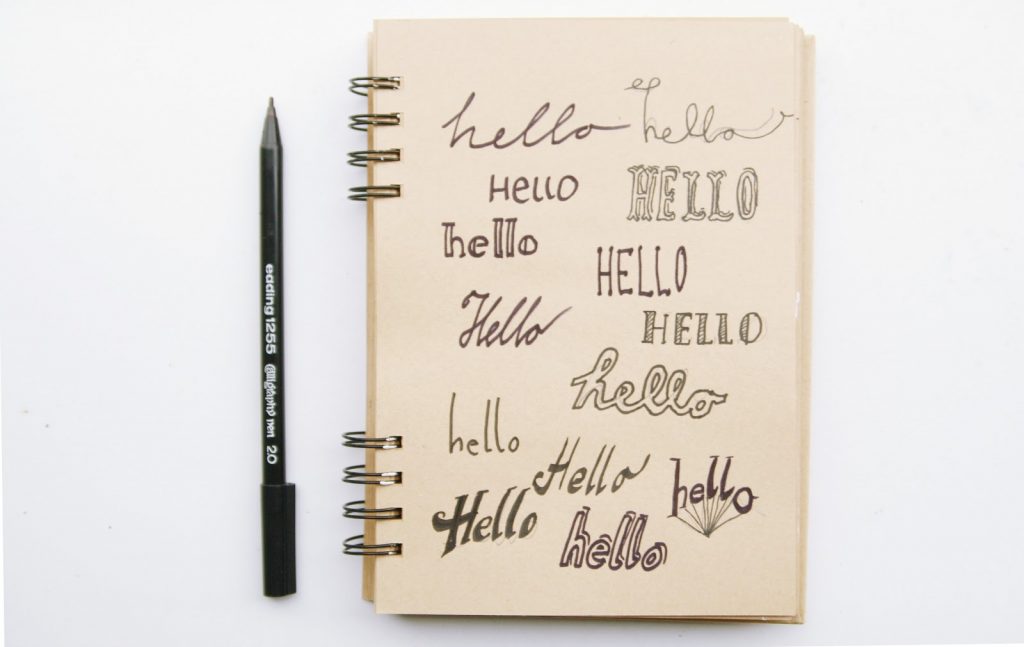 hello hello
Hello HELLO
hello
HELLO
Hello HELLO
hello
hello
Hello
Hello hello
hello
edding 1255 calligraphy pen 2.0